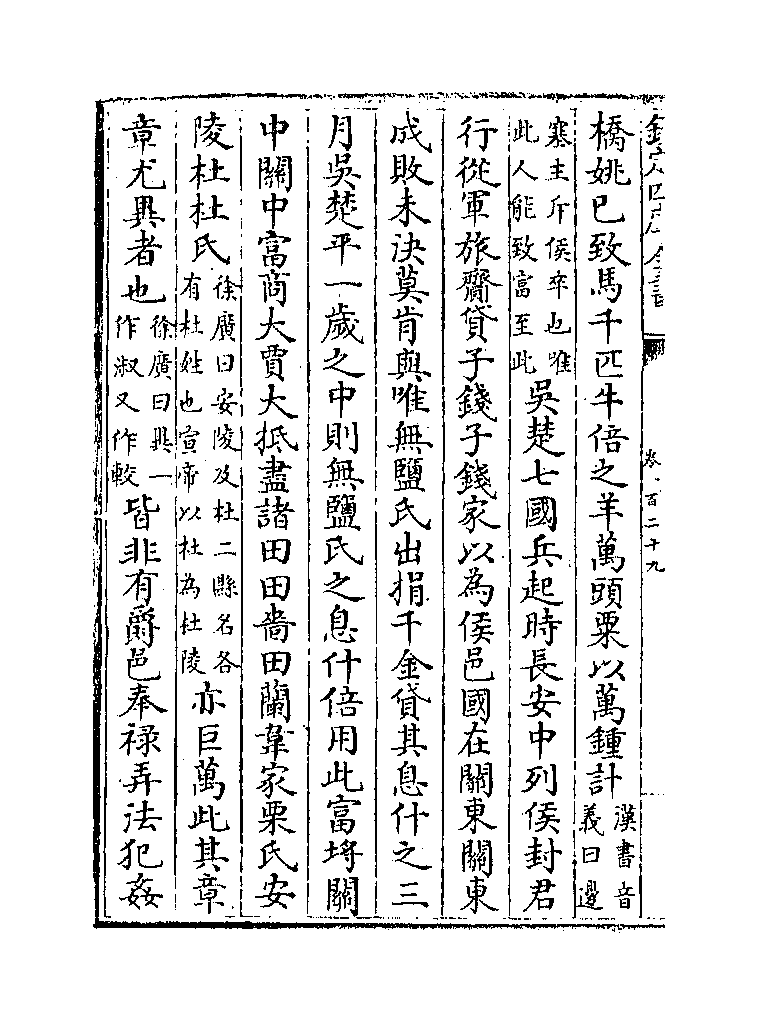 欽定四庫全書
卷一百二十九
橋姚已致馬千匹牛倍之羊萬頭粟以萬鍾計漢書音義曰邊
塞主斥侯卒也唯此人能致富至此吳楚七國兵起時長安中列侯封君
行從軍旅齎貸子錢子錢家以為侯邑國在關東關東
成敗未決莫肯與唯無鹽氏出捐千金貸其息什之三
月吳楚平一歲之中則無鹽氏之息什倍用此富埒關
中關中富商大賈大抵盡諸田田嗇田蘭韋家栗氏安
陵杜杜氏徐廣曰安陵及杜二縣名各有杜姓也宣帝以杜為杜陵亦巨萬此其章
章尤異者也徐廣曰異一作淑又作較皆非有爵邑奉祿弄法犯姦